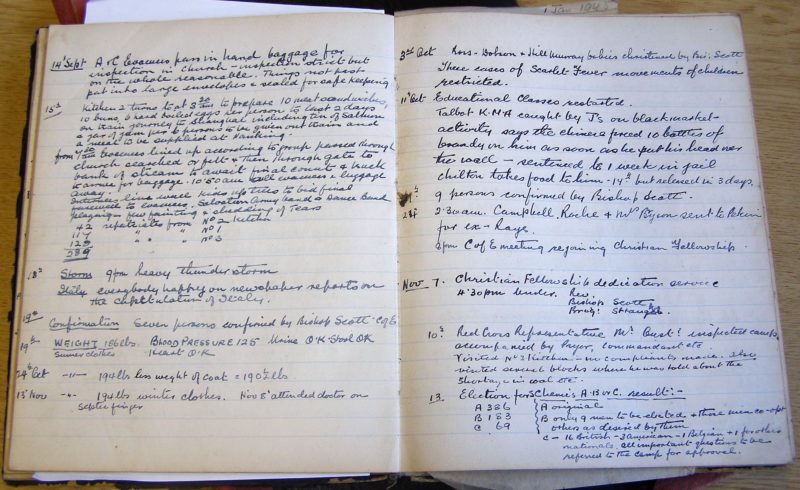 14th Sept A & C Evacuees pass in hand baggage for
inspection in Church - inspection strict but
on the whole reasonable. Things not past
put into large envelopes & sealed for safe keeping
15th Kitchen 2 turns to at 3 to prepare 10 meat sandwiches,
10 buns, 6 hard boiled eggs per person to last 2 days
on train journey to Shanghai including tin of Salmon
a jar of jam per 6 persons to be given out on train and
a meal to be supplied at
from 7 am Evacuees lined up according to group passed through
Church searched or felt & then through gate to
bank of stream to await final count & truck
to arrive for baggage. 10.50 am evacuees & luggage
away.
Internees line wall to bid final
farewell to evacuees. Salvation Army band & Dance Band
playing & shedding of Tears
42 repatriates from No 2 Kitchen
117 " " No 1
" " No 3
289
18th Storm 9pm heavy thunder storm
Italy everybody happy on newspaper reports on
the capitulation of Italy.
19th Confirmation Seven persons confirmed by Bishop Scott - C of E
19th WEIGHT 186 lbs. BLOOD PRESSURE 125 Urine O.K. Stool OK
Summer clothes Heart O.K
24th Oct -"- 194 lbs less weight of coat = 190½ lbs
13th Nov -"- 194 lbs winter clothes. Nov 8th attended doctor on
Septic finger
1 Jan 1943
3rd Oct Ross - Dobson & Hill Murray babies christened by Bis. Scott
Three cases of Scarlet Fever movements of children
restricted.
11th Oct Educational Classes restarted.
Talbot K.M.A caught by J's on black market
activity says the chinese forced 10 bottles of
brandy on him as soon as he put his head over
the wall - sentenced to 1 week in jail
Chilton takes food to him - 14th but released in 3 days.
9 persons confirmed by Bishop Scott.
28th 2.30am. Campbell, Roche & Mrs Bryson sent to Pekin
for ex-Rays.
2pm C of E meeting rejoining Christian Fellowship.
Nov 7. Christian Fellowship dedication service
4.30pm under. Rev.
Bishop Scott
10th Red Cross Representative Mr inspected camp,
accompanied by Mayor, commandant etc.
Visited No 2 Kitchen - no complaints made. Also
visited several blocks where he was told about the
Shortage in coal etc.
13. Election for Schemes A. B or C. result:-
A 386 A original
B 183 B only 9 men to be elected & these men co-opt
C 69 others as desired by them
C - 16 British - 3 American - 1 Belgian & 1 for others
nationals. All important questions to be
referred to the camp for approval.